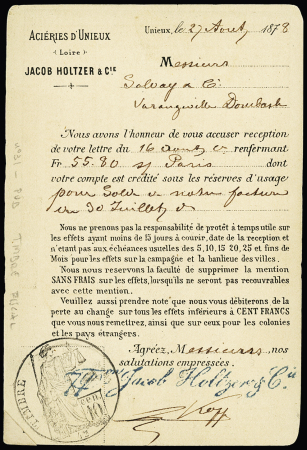 ACIÉRIES D'UNIEUX
Loire
JACOB HOLTZER & Cie
Unieux, le 27 Août 1878
Messieurs
Solvay & Cie
Varangeville Dombasle
Nous avons l'honneur de vous accuser réception
de votre lettre du 16 août ct renfermant
Fr 55.80 s/ Paris dont
votre compte est crédité sous les réserves d'usage
pour Solde de notre facture
du 30 Juillet d
Nous ne prenons pas la responsabilité de protêt à temps utile sur
les effets ayant moins de 15 jours à courir, date de la réception et
n'étant pas aux échéances usuelles des 5, 10, 15, 20, 25 et fins de
Mois pour les effets sur la campagne et la banlieue des villes.
Nous nous réservons la faculté de supprimer la mention
SANS FRAIS sur les effets, lorsqu'ils ne seront pas recouvrables
avec cette mention.
Veuillez aussi prendre note que nous vous débiterons de la
perte au change sur tous les effets inférieurs à CENT FRANCS
que vous nous remettrez, ainsi que sur ceux pour les colonies
et les pays étrangers.
Agréez, Messieurs, nos
salutations empressées.
Jacob Holtzer & Cie
TIMBRE
10